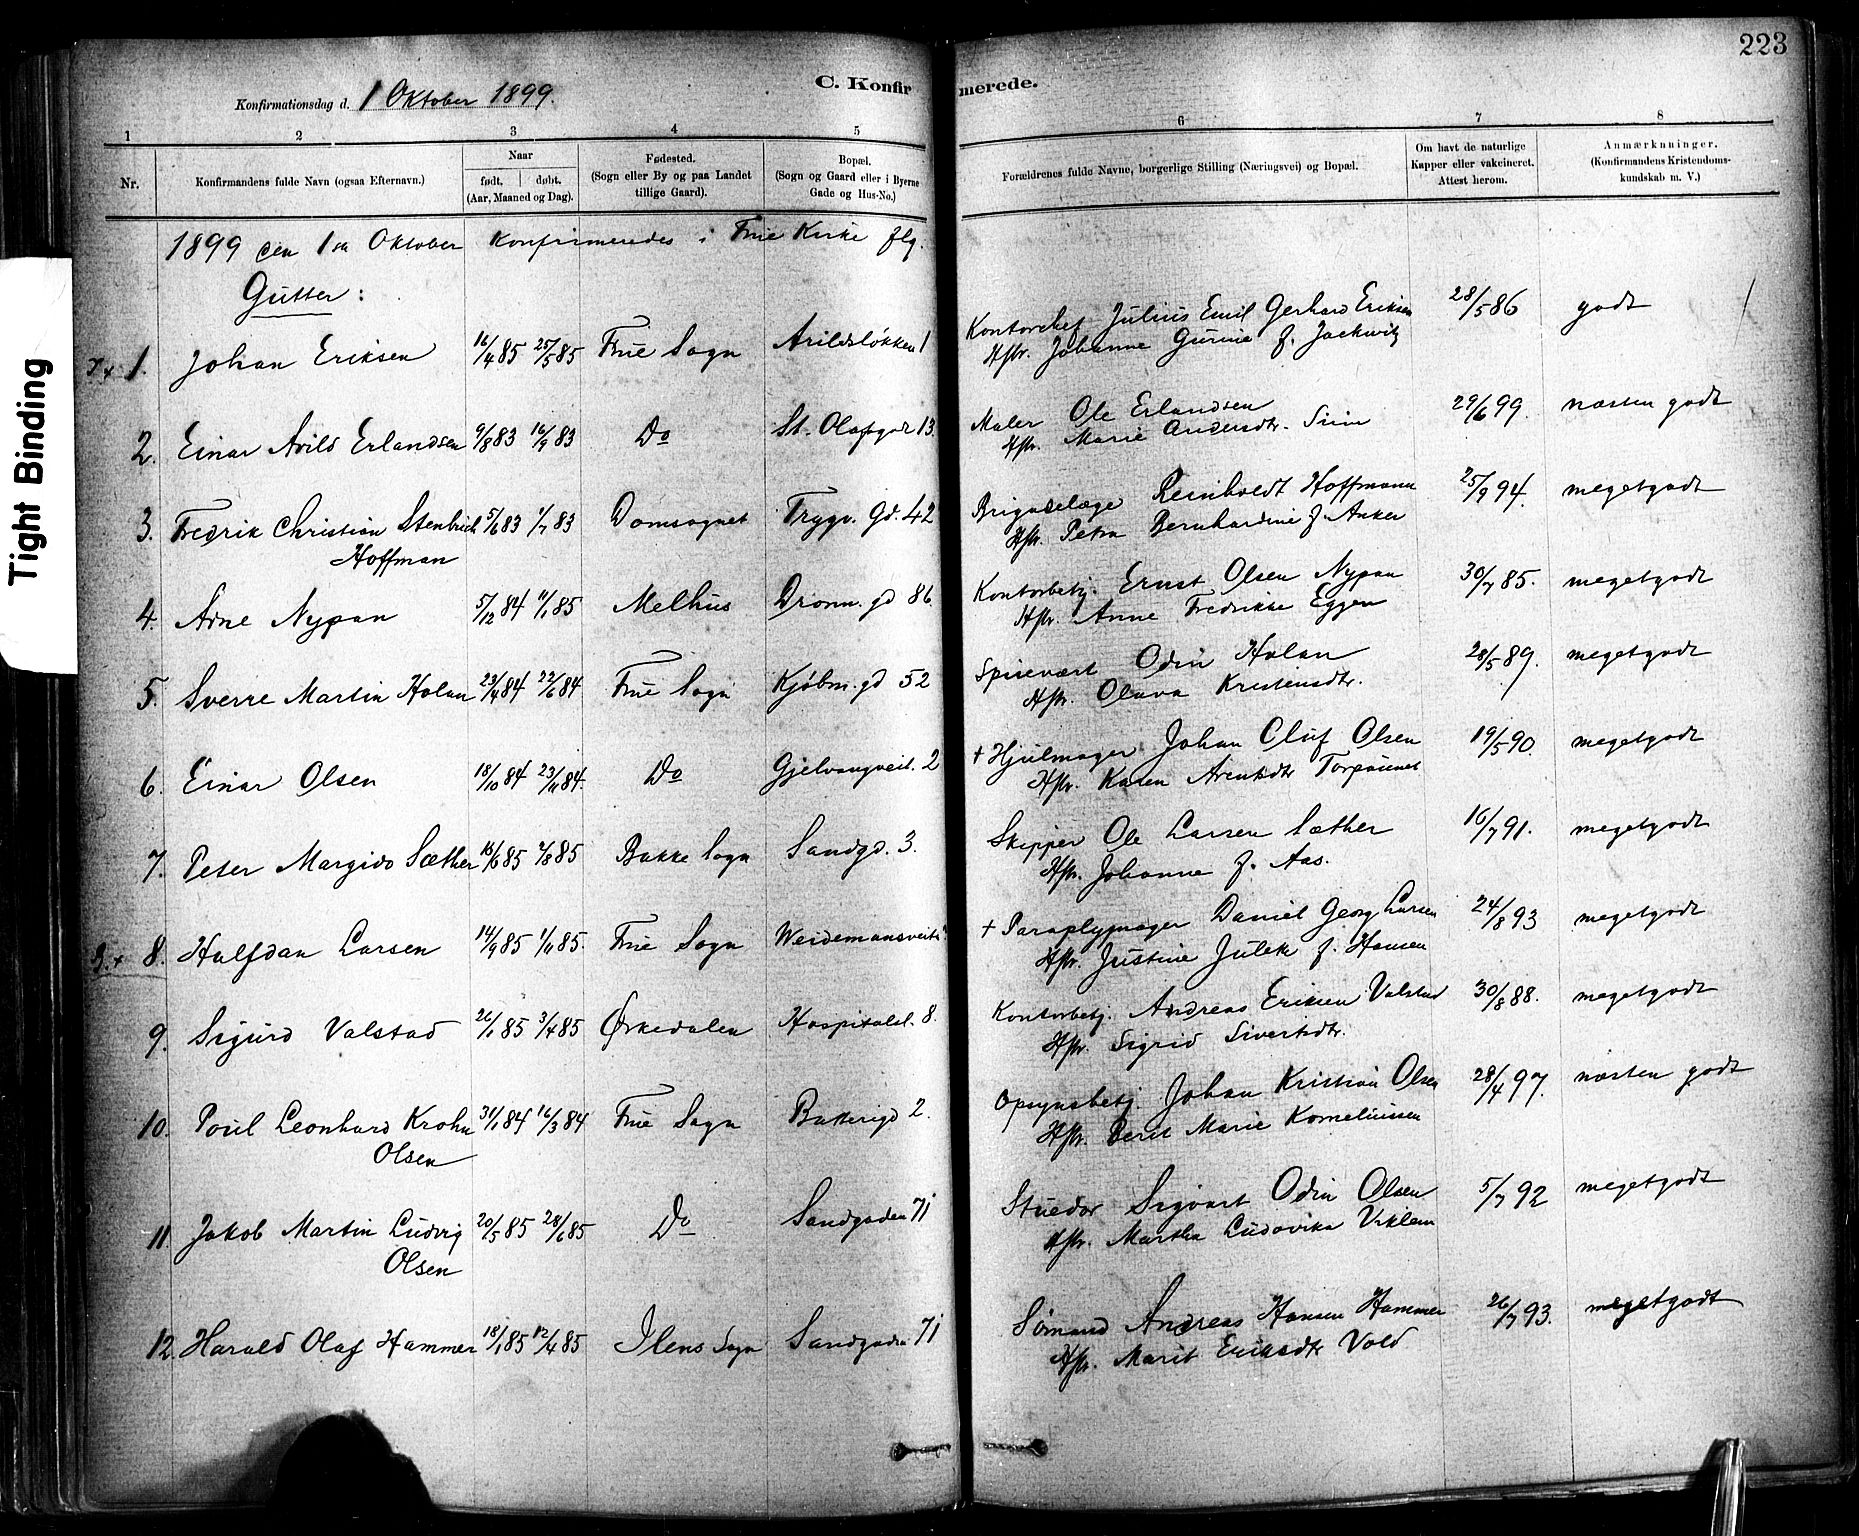 223
Konfirmationsdag d. 1 Oktober 1899.
C. Konfirmerede.
1 2 3 4 5 6 7 8
Nr.
Konfirmandens fulde Navn (ogsaa Efternavn.)
Naar
født, døbt.
(Aar, Maaned og Dag).
Fødested.
(Sogn eller By og paa Landet
tillige Gaard).
Bopæl.
(Sogn og Gaard eller i Byerne
Gade og Hus-No.)
Forældrenes fulde Navne, borgerlige Stilling (Næringsvei) og Bopæl.
Om havt de naturlige
Kapper eller vakcineret.
Attest herom.
Anmærkninger.
(Konfirmandens Kristendoms-
kundskab m. V.)
Tight Binding
1899 den 1ste Oktober Konfirmeredes i Frue Kirke flg.
Gutter:
1. Johan Eriksen 16/4 85 25/5 85 Frue Sogn Arildsløkken 1 Kontorchef Julius Emil Gerhard Eriksen 28/5 86 godt
Hstr. Johanne Gurine f. Jackwitz
2. Einar Arild Erlandsen 9/8 83 16/9 83 Do St. Olafsgad 13. Maler Ole Erlandsen 29/6 99. næsten godt
Hstr. Marie Andersdtr.
3. Fredrik Christian Stenbuch 5/6 83 1/7 83 Domsognet Trygv. Gd. 42 Brigadelæge Reinholdt Hoffmann 25/9 94. megetgodt
Hoffman Hstr. Petra Bernhardine f. Anker
4. Arne Nypan 5/12 84 11/1 85 Melhus Dronn. gd 86. Kontorbetj. Ernst Olsen Nypan 30/7 85. megetgodt
Hstr. Anne Fredrikke Eggen
5. Sverre Martin Holan 23/4 84 22/6 84 Frue Sogn Kjøbm. gd 52 Spisevært Odin Holan 28/5 89. megetgodt
Hstr. Olava Kristensdtr.
6. Einar Olsen 18/10 84 23/11 84. Do Gjelvangveit. 2 + Hjulmager Johan Oluf Olsen 19/5 90. megetgodt
Hstr. Karen Arentsdtr
7. Peter Margido Sæther 16/6 85 2/8 85 Bakke Sogn Sandgd. 3. Skipper Ole Larsen Sæther 16/7 91. megetgodt
Hstr. Johanne f. Aas.
8. Halfdan Larsen 14/9 85 1/11 85. Frue Sogn Weidemansveit + Paraplymager Daniel Georg Larsen 24/8 93 megetgodt
Hstr. Justine f. Hansen
9. Sigurd Valstad 26/1 85 3/4 85 Ørkedalen Hospitalsl. 8. Kontorbetj. Andreas Eriksen Valstad 30/8 88. megetgodt
Hstr. Sigrid Sivertsdtr.
10. Poul Leonhard Krohn 31/1 84 16/3 84 Frue Sogn Batterigd 2. Opsynsbetj. Johan Kristian Olsen 28/4 97. næsten godt
Olsen Hstr. Berit Marie Korneliussen
11. Jakob Martin Ludvig 20/5 85 28/6 85 Do Sandgaden 71 Stuedor Sigvart Odin Olsen 5/7 92 megetgodt
Olsen Hstr. Martha Ludovika Viklem
12. Harald Olaf Hammer 18/1 85 12/4 85 Ilens Sogn Sandgaden 71 Sømand Andreas Hansen Hammer 26/7 93. megetgodt
Hstr. Marit Eriksdtr Vold